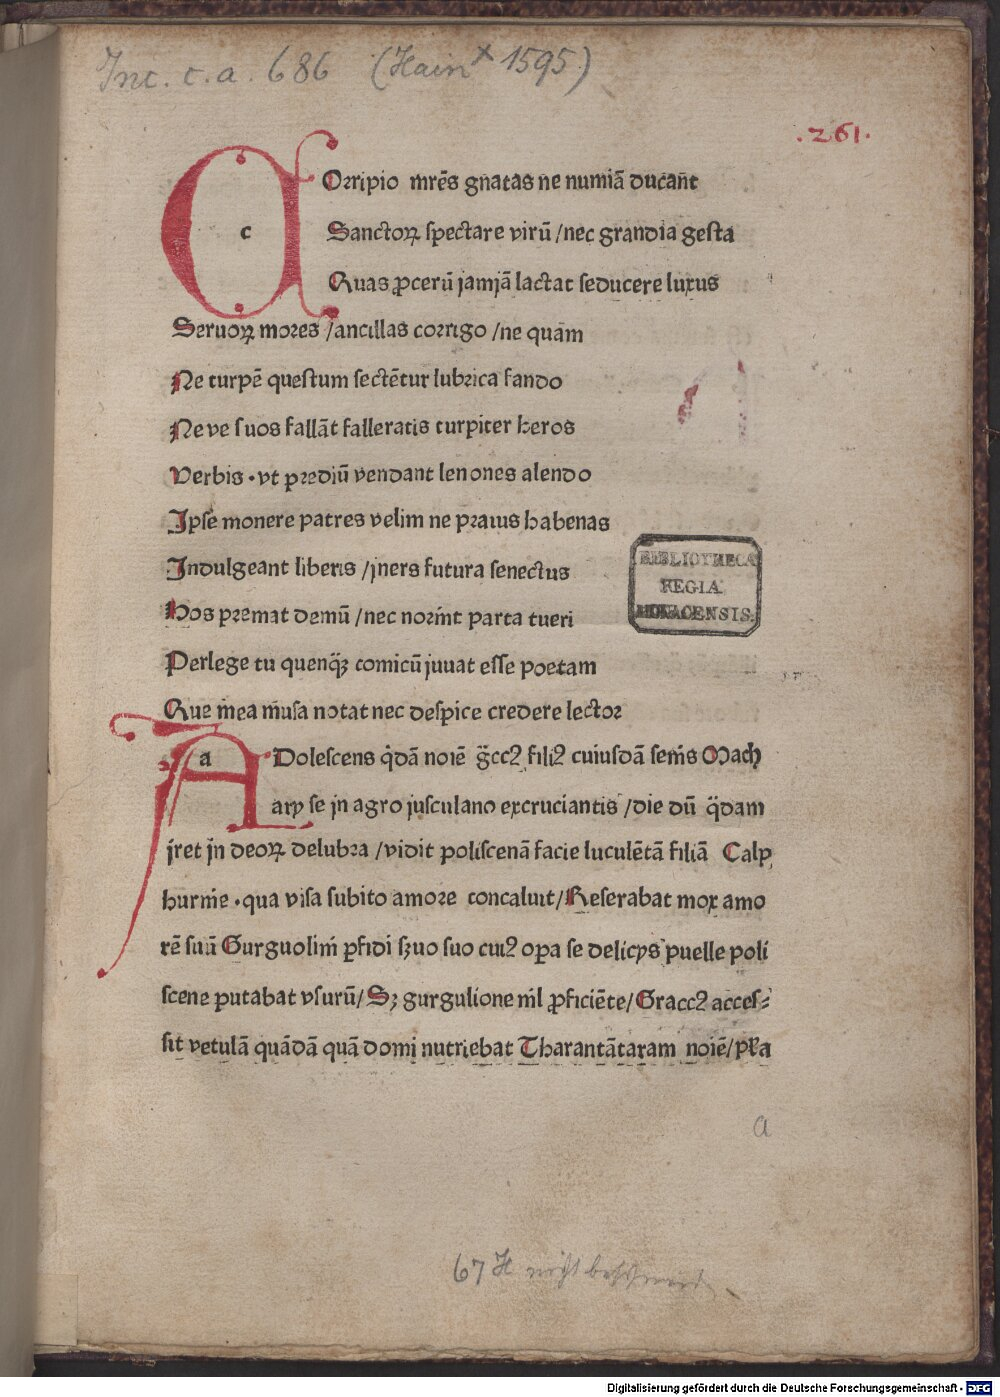 Inc. c. a. 686 (Hain x 1595)
.261.
c
Orripio mrēs gnatas ne numiā ducāt
Sanctoꝝ spectare virū /nec grandia gesta
Quas ꝓcerū jamjā lactat seducere luxus
Seruoꝝ mores /ancillas corrigo /ne quām
Ne turpē questum sectētur lubrica fando
Neve suos fallāt falleratis turpiter heros
Verbis ·vt prediū vendant lenones alendo
Ipse monere patres velim ne prauus habenas
Indulgeant liberis /jners futura senectus
Hos premat demū /nec norint parta tueri
Perlege tu quenqꝫ comicū juvat esse poetam
Que mea musa notat nec despice credere lector
a
Dolescens qdā noiē gcc9 fili9 cuiusdā senis Mach
arij se jn agro jusculano excruciantis /die dū qdam
jret jn deoꝝ delubra /vidit poliscenā facie luculētā filiā Calp
hurnie ·qua visa subito amore concaluit/Reserabat mox amo
rē suū Gurguolini ꝑfidi suo cui9 oꝑa se delicijs puelle poli
scene putabat vsurū/ Sꝫ gurgulione nil ꝓficiēte/ Gracc9 acces⸗
sit vetulā quādā quā domi nutriebat Tharantātaram noiē/
BIBLIOTHECA
REGIA
MONACENSIS.
a
67 H nicht
Digitalisierung gefördert durch die Deutsche Forschungsgemeinschaft - DFG